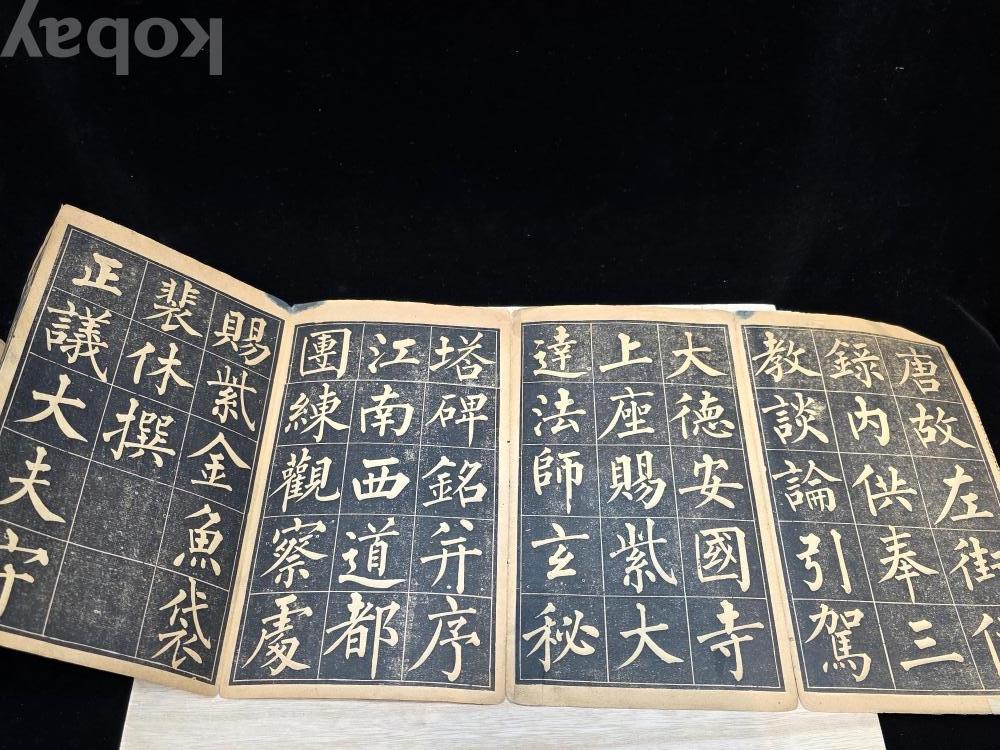 唐故左街
錄内供奉三
教談論引駕
大德安國寺
上座賜紫大
達法師玄秘
塔碑銘并序
江南西道都
團練觀察處
賜紫金魚袋
裴休撰
正議大夫守
kobay